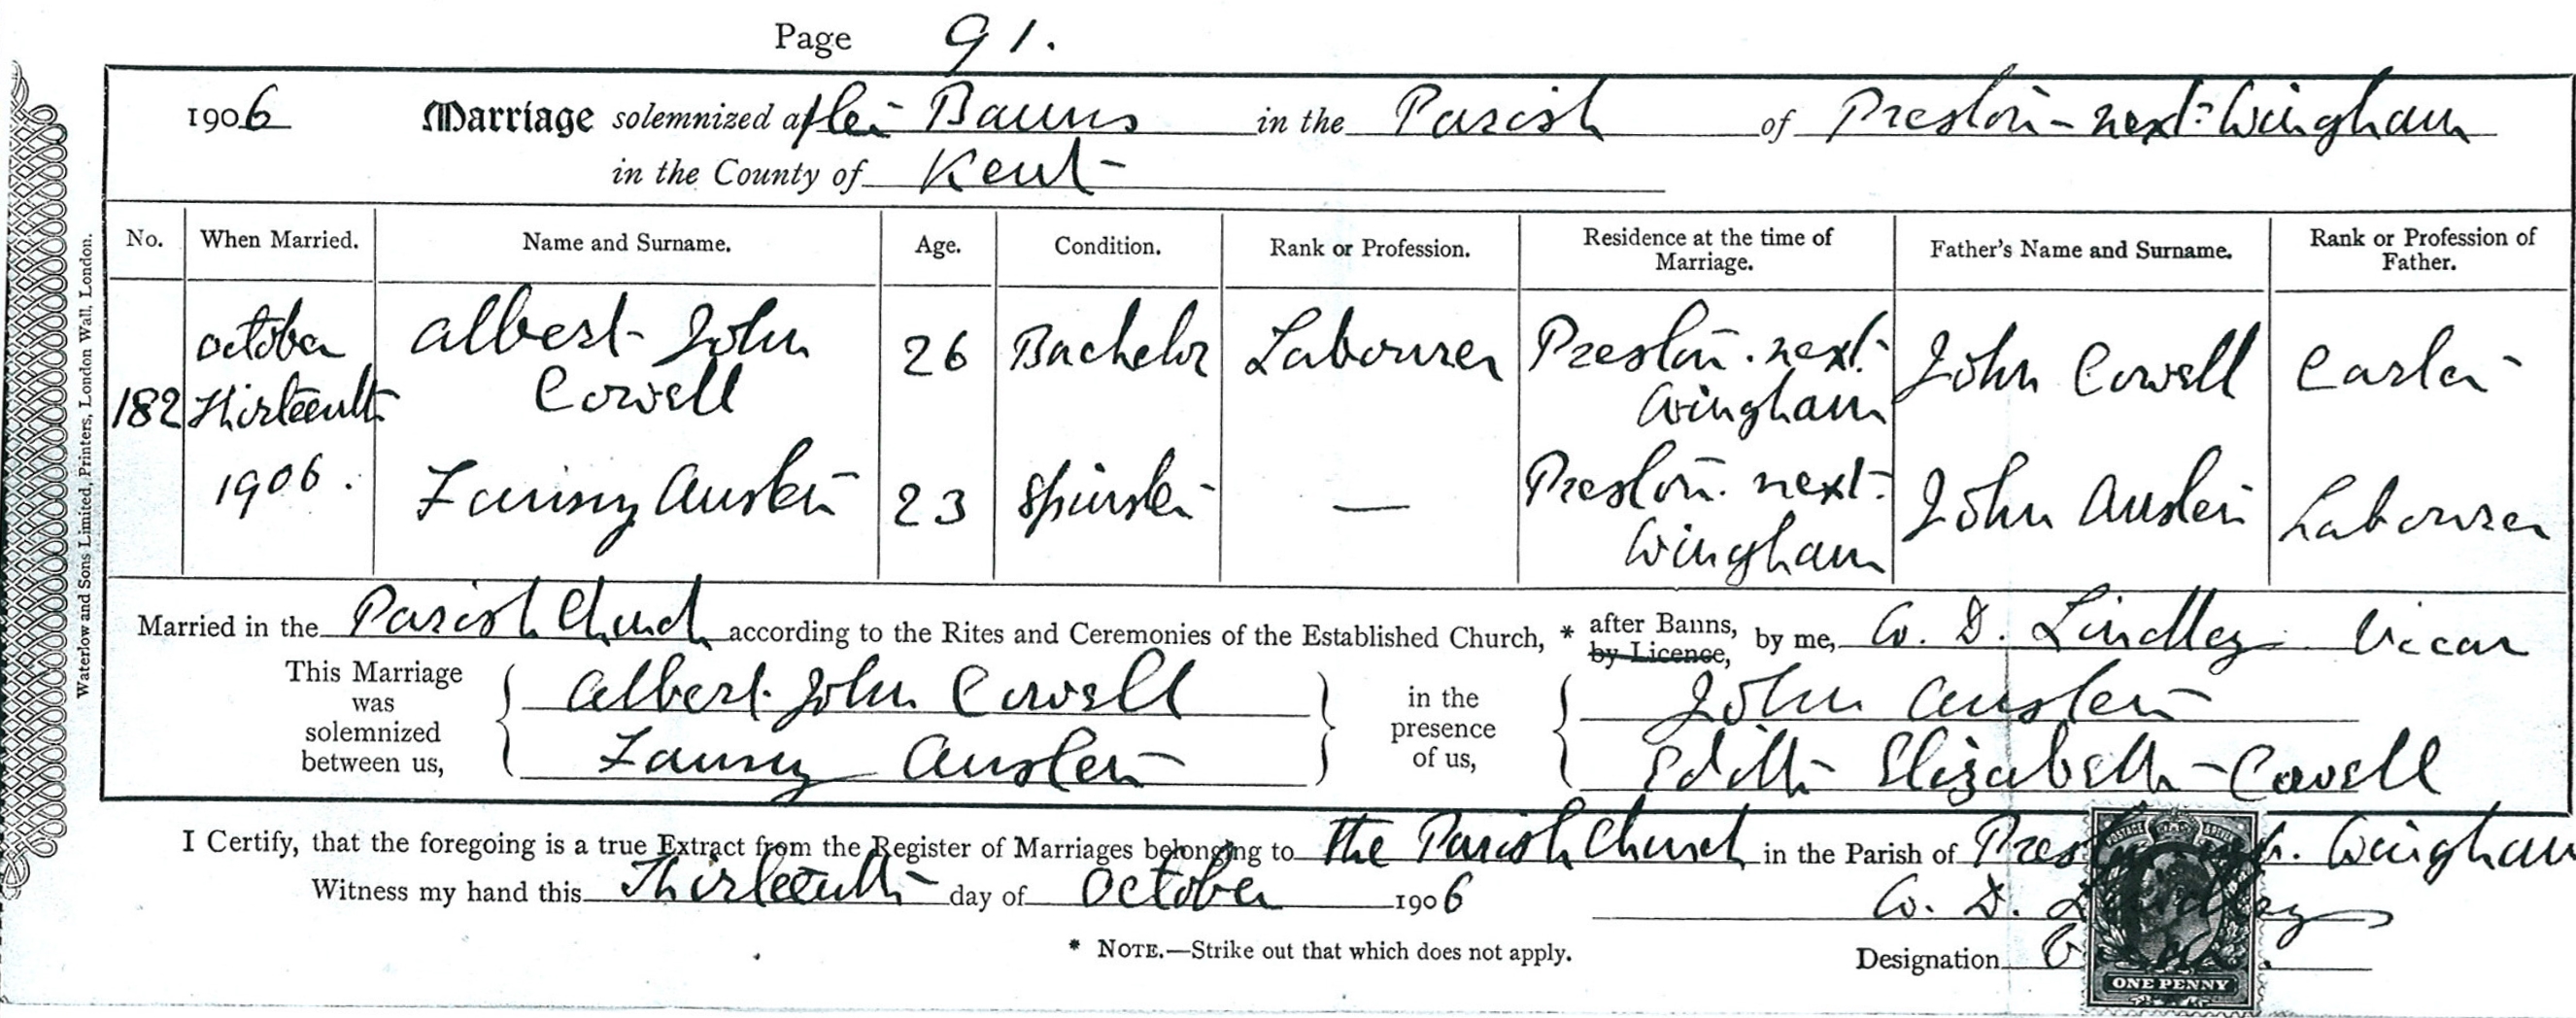 Page 91.
1906 Marriage solemnized after Banns in the Parish of Preston-next-Wingham
in the County of Kent
No. When Married. Name and Surname. Age. Condition. Rank or Profession. Residence at the time of Marriage. Father's Name and Surname. Rank or Profession of Father.
182 October Thirteenth 1906. Albert John Cowell 26 Bachelor Labourer Preston-next-Wingham John Cowell Carter
Fanny Austen 23 Spinster — Preston-next-Wingham John Austen Labourer
Married in the Parish Church according to the Rites and Ceremonies of the Established Church, * after Banns, by Licence, by me, W. D. Lindley Vicar
This Marriage was solemnized between us, Albert John Cowell Fanny Austen in the presence of us, John Austen Edith Elizabeth Cowell
I Certify, that the foregoing is a true Extract from the Register of Marriages belonging to the Parish Church in the Parish of Preston Wingham
Witness my hand this Thirteenth day of October 1906 W. D. Lindley
* NOTE.—Strike out that which does not apply. Designation
POSTAGE
ONE PENNY
Waterlow and Sons Limited, Printers, London Wall, London.